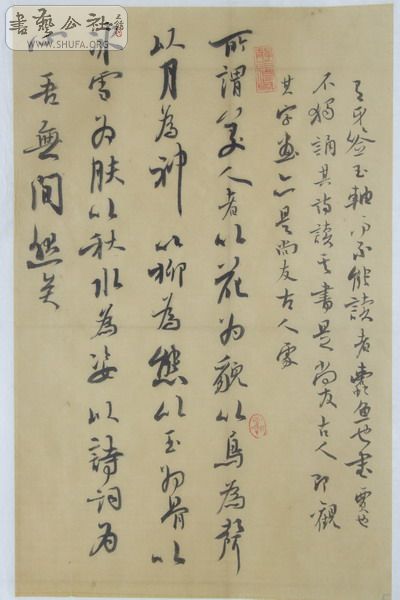 書藝公社
WWW.SHUFA.ORG
有牙签玉軸而不能讀者蠹魚也書賈也
不獨誦其詩讀其書是尚友古人即觀
其字畫亦是尚友古人處
所謂美人者以花为貌以鳥為聲
以月為神以柳為態以玉为骨以
冰雪为肤以秋水為姿以詩词为
心吾無間然矣